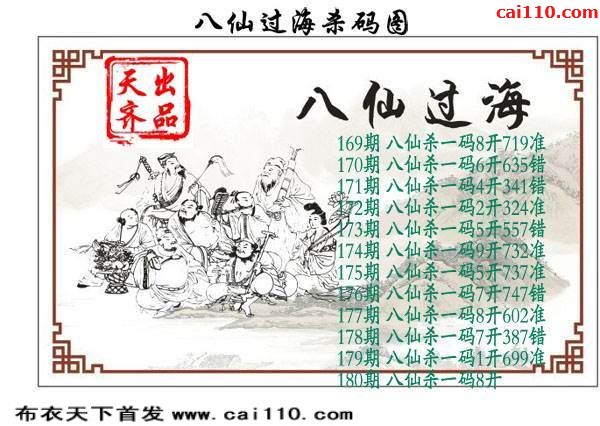 八仙过海杀码图
cai110.com
天齐出品
八仙过海
169期 八仙杀一码8开719准
170期 八仙杀一码6开635错
171期 八仙杀一码4开341错
172期 八仙杀一码2开324准
173期 八仙杀一码5开557错
174期 八仙杀一码9开732准
175期 八仙杀一码5开737准
176期 八仙杀一码7开747错
177期 八仙杀一码8开602准
178期 八仙杀一码7开387错
179期 八仙杀一码1开699准
180期 八仙杀一码8开
布衣天下首发 www.cai110.com